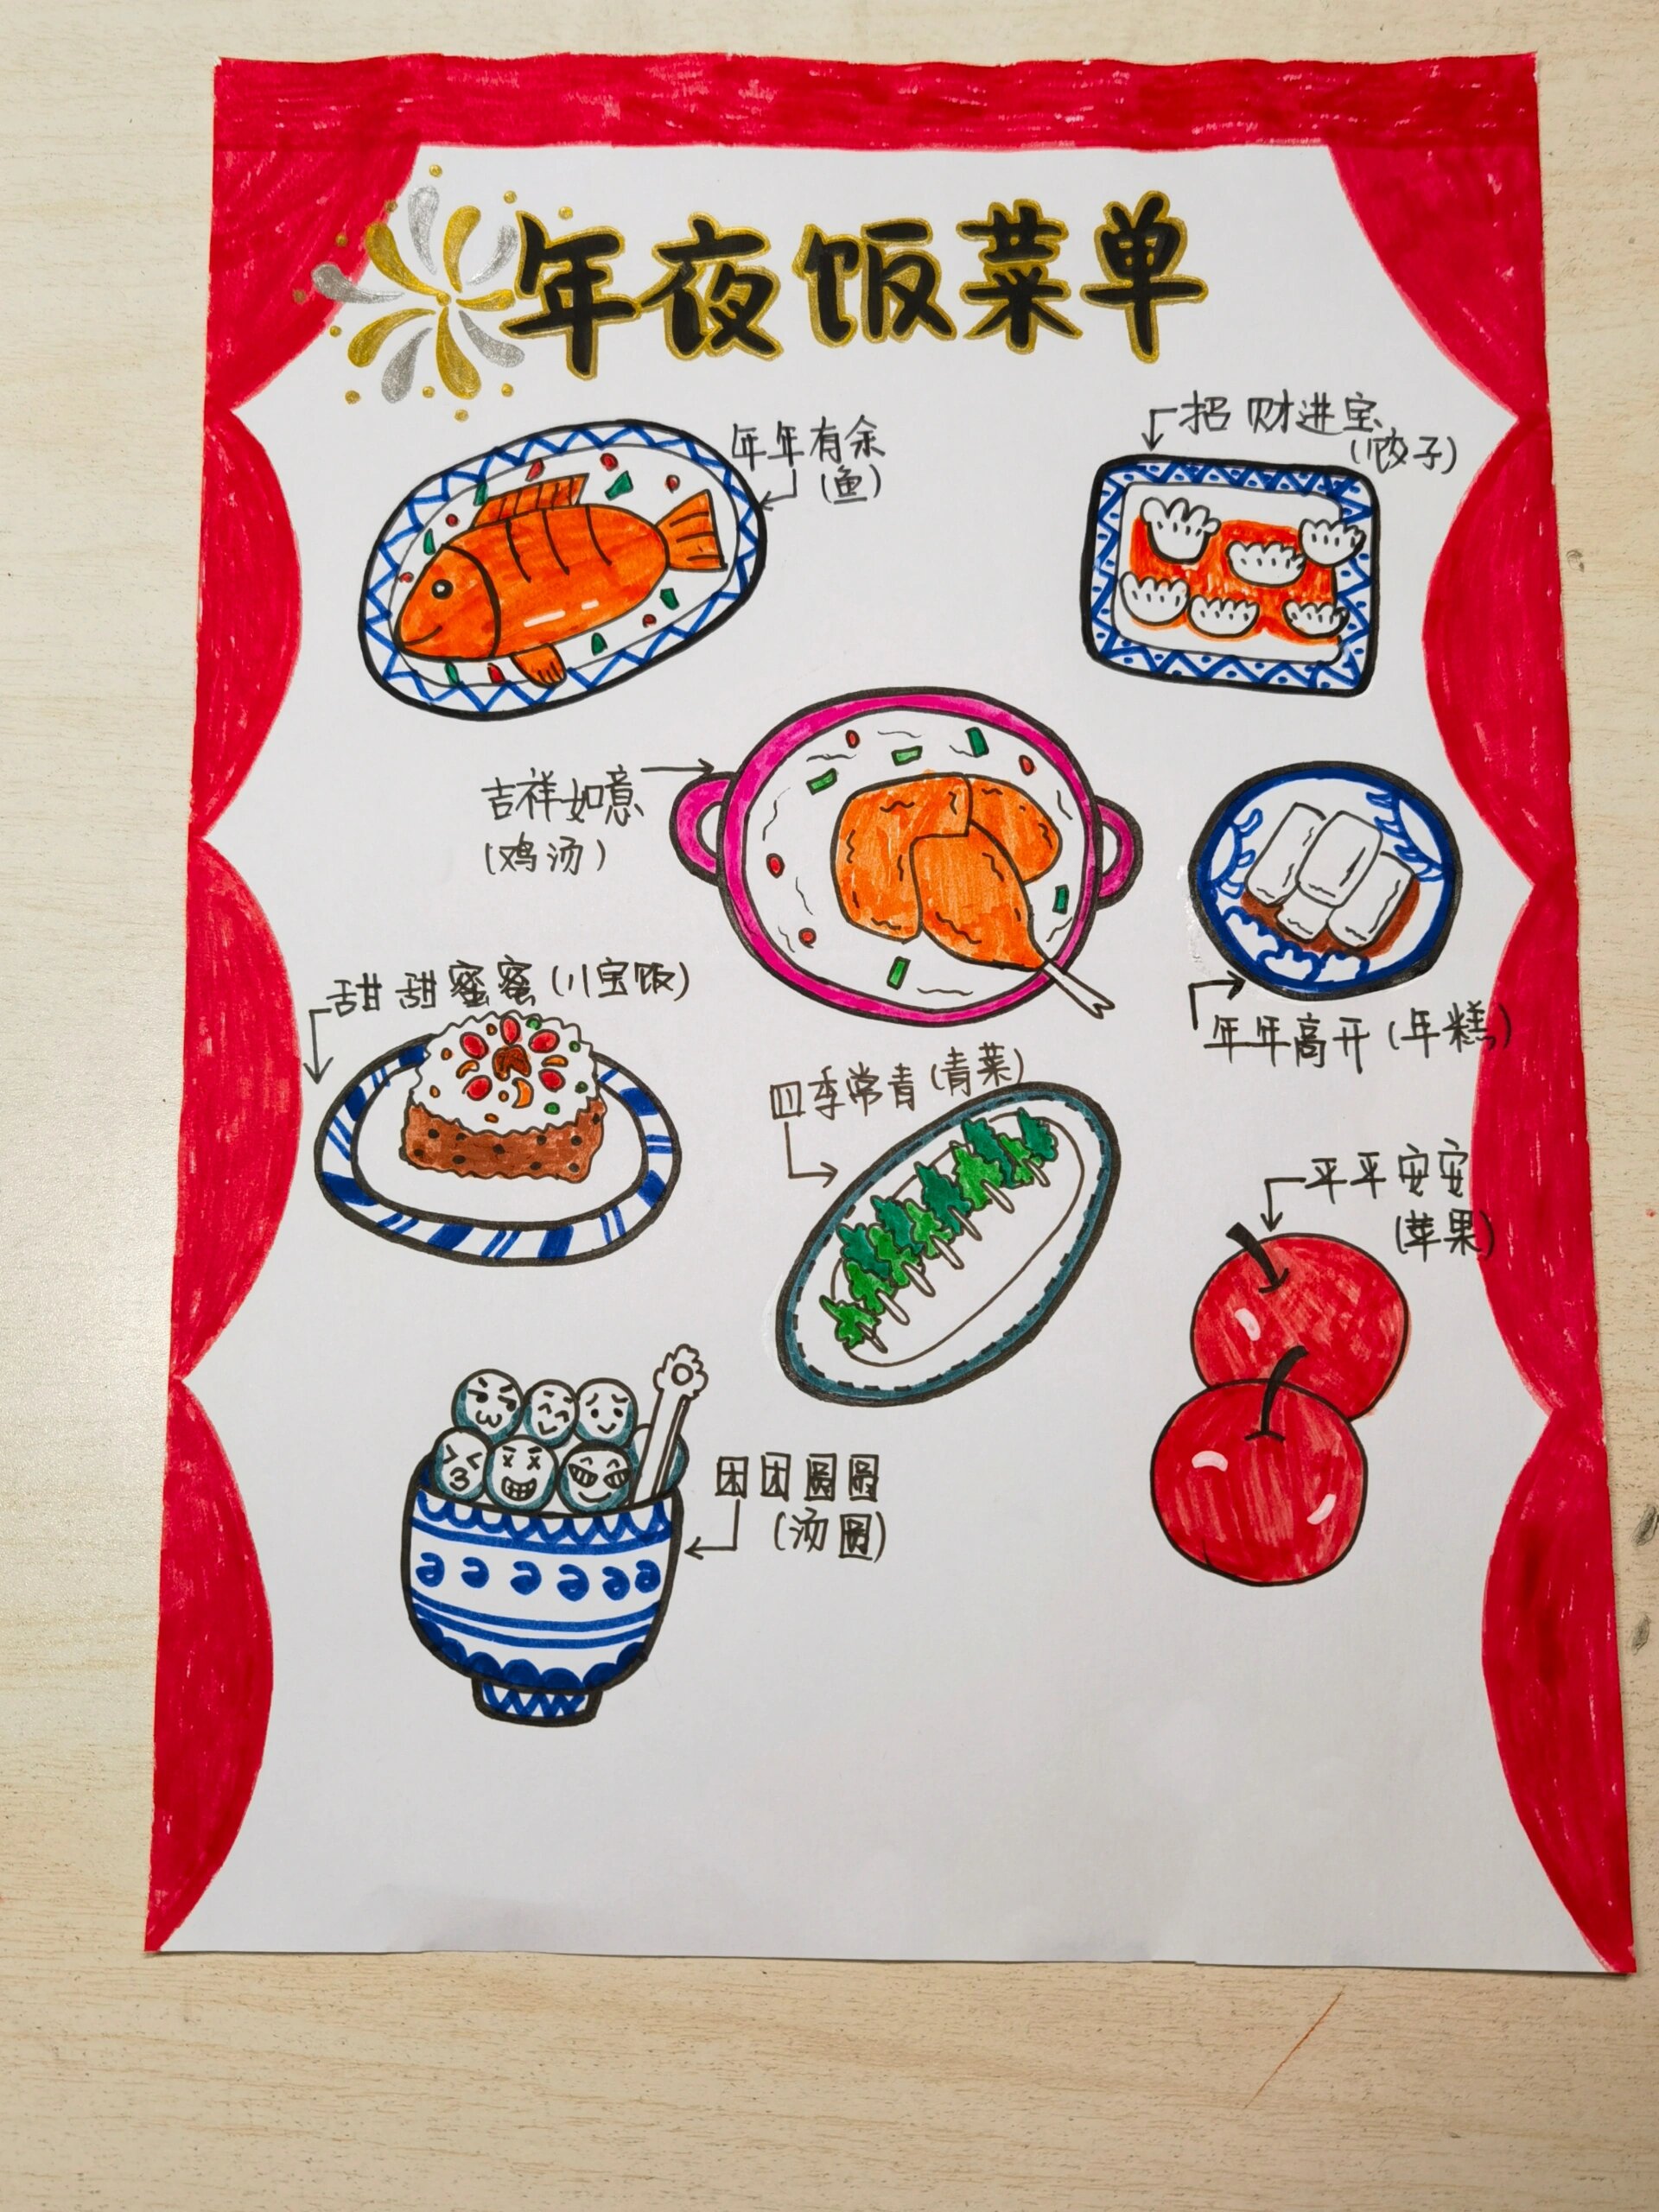 年夜饭菜单
年年有余
(鱼)
招财进宝
(饺子)
吉祥如意
(鸡汤)
年年高开(年糕)
甜甜蜜蜜(八宝饭)
四季常青(青菜)
平平安安
(苹果)
团团圆圆
(汤圆)